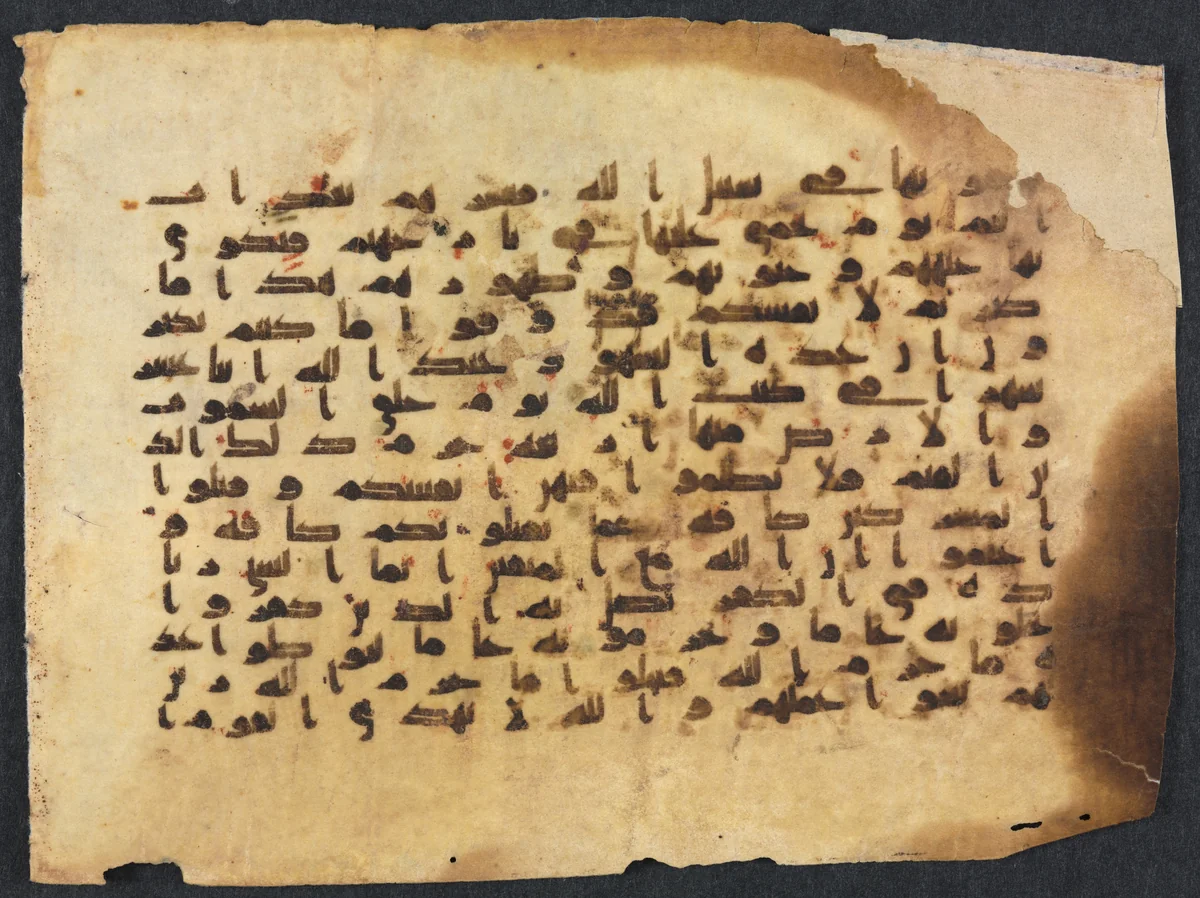 نها في سبيل الله فبشرهم بعذاب
اليم يوم يحمى عليها في نار جهنم فتكوى
بها جباههم وجنوبهم وظهورهم هذا ما
كنزتم لانفسكم فذوقوا ما كنتم تكنز
ون ان عدة الشهور عند الله اثنا عشر
شهرا في كتب الله يوم خلق السموت
والارض منها اربعة حرم ذلك الد
ين القيم فلا تظلموا فيهن انفسكم وقتلوا
المشركين كافة كما يقتلونكم كافة و
اعلموا ان الله مع المتقين انما النسي زيا
دة في الكفر يضل به الذين كفروا
يحلونه عاما ويحرمونه عاما ليوطوا عد
ة ما حرم الله فيحلوا ما حرم الله زين
لهم سو اعملهم والله لا يهدي القوم ا